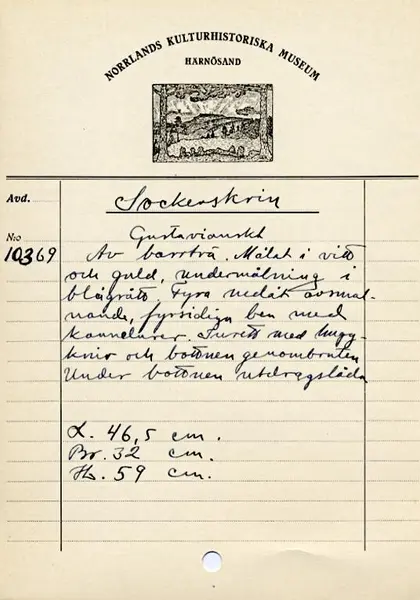 NORRLANDS KULTURHISTORISKA MUSEUM
HÄRNÖSAND
Avd.
Sockerskrin
N:o
Gustavianskt
10369
Av barrträ. Målat i vitt
och guld, undermålning i
blågrått. Fyra nedåt avsmal-
nande, fyrsidiga ben med
kannelurer. Inrett med
och bottnen genombruten
Under bottnen utdragslåda
L. 46,5 cm.
Br. 32 cm.
H. 59 cm.